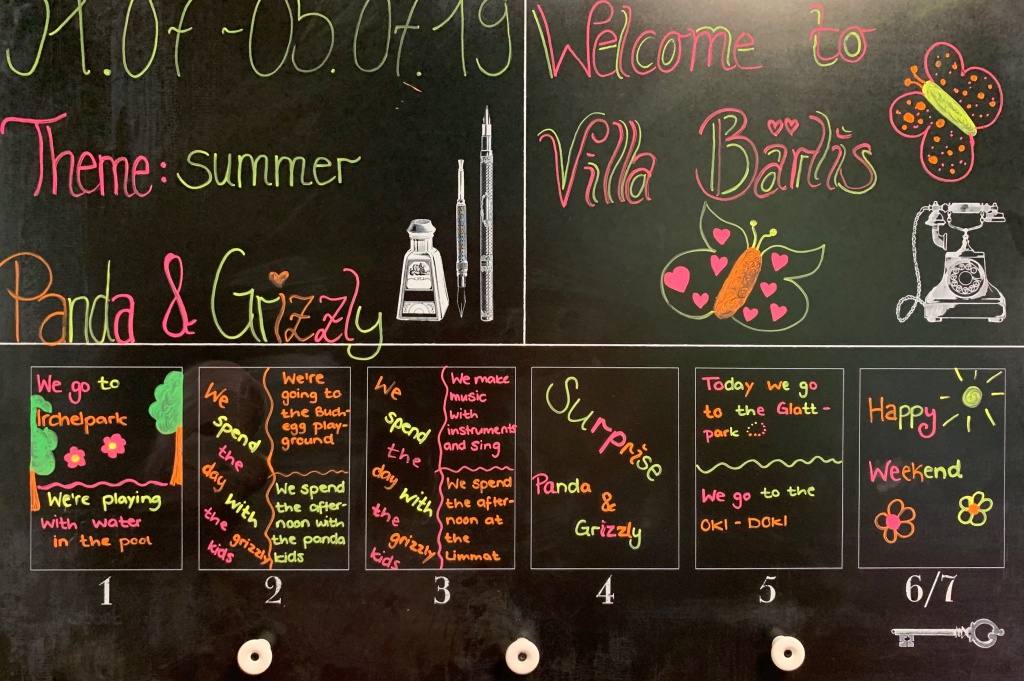 01.07 -05.07.19
Theme: summer
Panda & Grizzly
Welcome to
Villa Bärlis
We go to
Irchelpark
We're playing
with water
in the pool
1
We
spend
the
day
with
the
grizzly
kids
We're
going to
the Buch-
egg play-
ground
We spend
the after-
noon with
the panda
kids
2
We
spend
the
day
with
the
grizzly
kids
We make
music
with
instruments
and sing
We spend
the after-
noon at
the
Limmat
3
Surprise
Panda
&
Grizzly
4
Today we go
to the Glatt-
park
We go to the
OKI - DOKI
5
Happy
Weekend
6/7